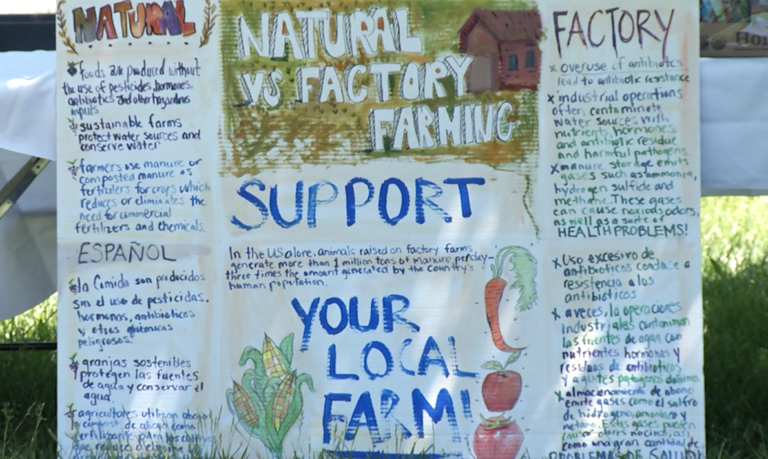 NATURAL
foods are produced without
the use of pesticides, hormones,
antibiotics and other hazardous
inputs
sustainable farms
protect water sources and
conserve water
farmers use manure or
composted manure as
fertilizers for crops which
reduces or eliminates the
need for commercial
fertilizers and chemicals.
ESPAÑOL
la Comida son producidos
sin el uso de pesticidas,
hormonas, antibióticos
y otros químicas
peligrosos
granjas sostenibles
protegen las fuentes
de agua y conservar el
agua
agricultores utilizan
de abono como
fertilizante para los cultivos
NATURAL
VS FACTORY
FARMING
SUPPORT
In the US alone, animals raised on factory farms
generate more than 1 million tons of manure per day-
three times the amount generated by the country's
human population.
YOUR
LOCAL
FARM!
FACTORY
x overuse of antibiotics
lead to antibiotic resistance
x industrial operations
often contaminate
water sources with
nutrients, hormones,
and antibiotic residue
and harmful pathogens
x manure storage emits
gases such as ammonia,
hydrogen sulfide and
methane. These gases
can cause noxious odors,
as well as a sorte of
HEALTH PROBLEMS!
x Uso excesivo de
antibióticos conduce a
resistencia a los
antibióticos
x a veces, la operaciones
Industriales contaminan
las fuentes de agua con
nutrientes hormonas y
residuos de antibióticos
y agentes patógenos
x almacenamiento de abono
emite gases como el sulfro
de hidrógeno, amoníaco y
metano. Estas gases pueden
olores nocivos, así
como una gran cantidad de
PROBLEMAS DE SALUD!